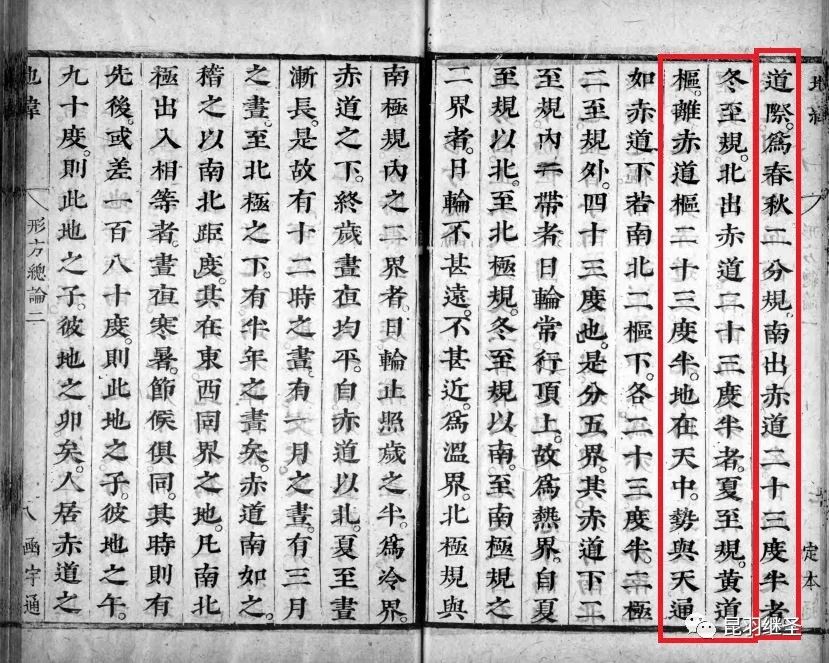 地緯
定本
道際。爲春秋二分規。南出赤道二十三度半者
冬至規。北出赤道二十三度半者。夏至規。黄道
樞。離赤道樞二十三度半。地在天中。勢與天通
如赤道下若南北二樞下。各二十三度半。二極
二至規外。四十三度也。是分五界。其赤道下二
至規內二帶者。日輪常行頂上。故爲熱界。自夏
至規以北。至北極規。冬至規以南。至南極規之
二界者。日輪不甚遠。不甚近。爲溫界。北極規與
南極規內之二界者。日輪止照歲之半。爲冷界。
赤道之下。終歲晝夜均平。自赤道以北。夏至晝
漸長。是故有十二時之晝。有一月之晝。有三月
之晝。至北極之下。有半年之晝矣。赤道南如之。
稽之以南北距度。其在東西同界之地。凡南北
極出入相等者。晝夜寒暑。節候俱同。其時則有
先後。或差一百八十度。則此地之子。彼地之午。
九十度。則此地之子。彼地之卯矣。人居赤道之
地緯
形方總論二
八
函宇通
昆羽继圣